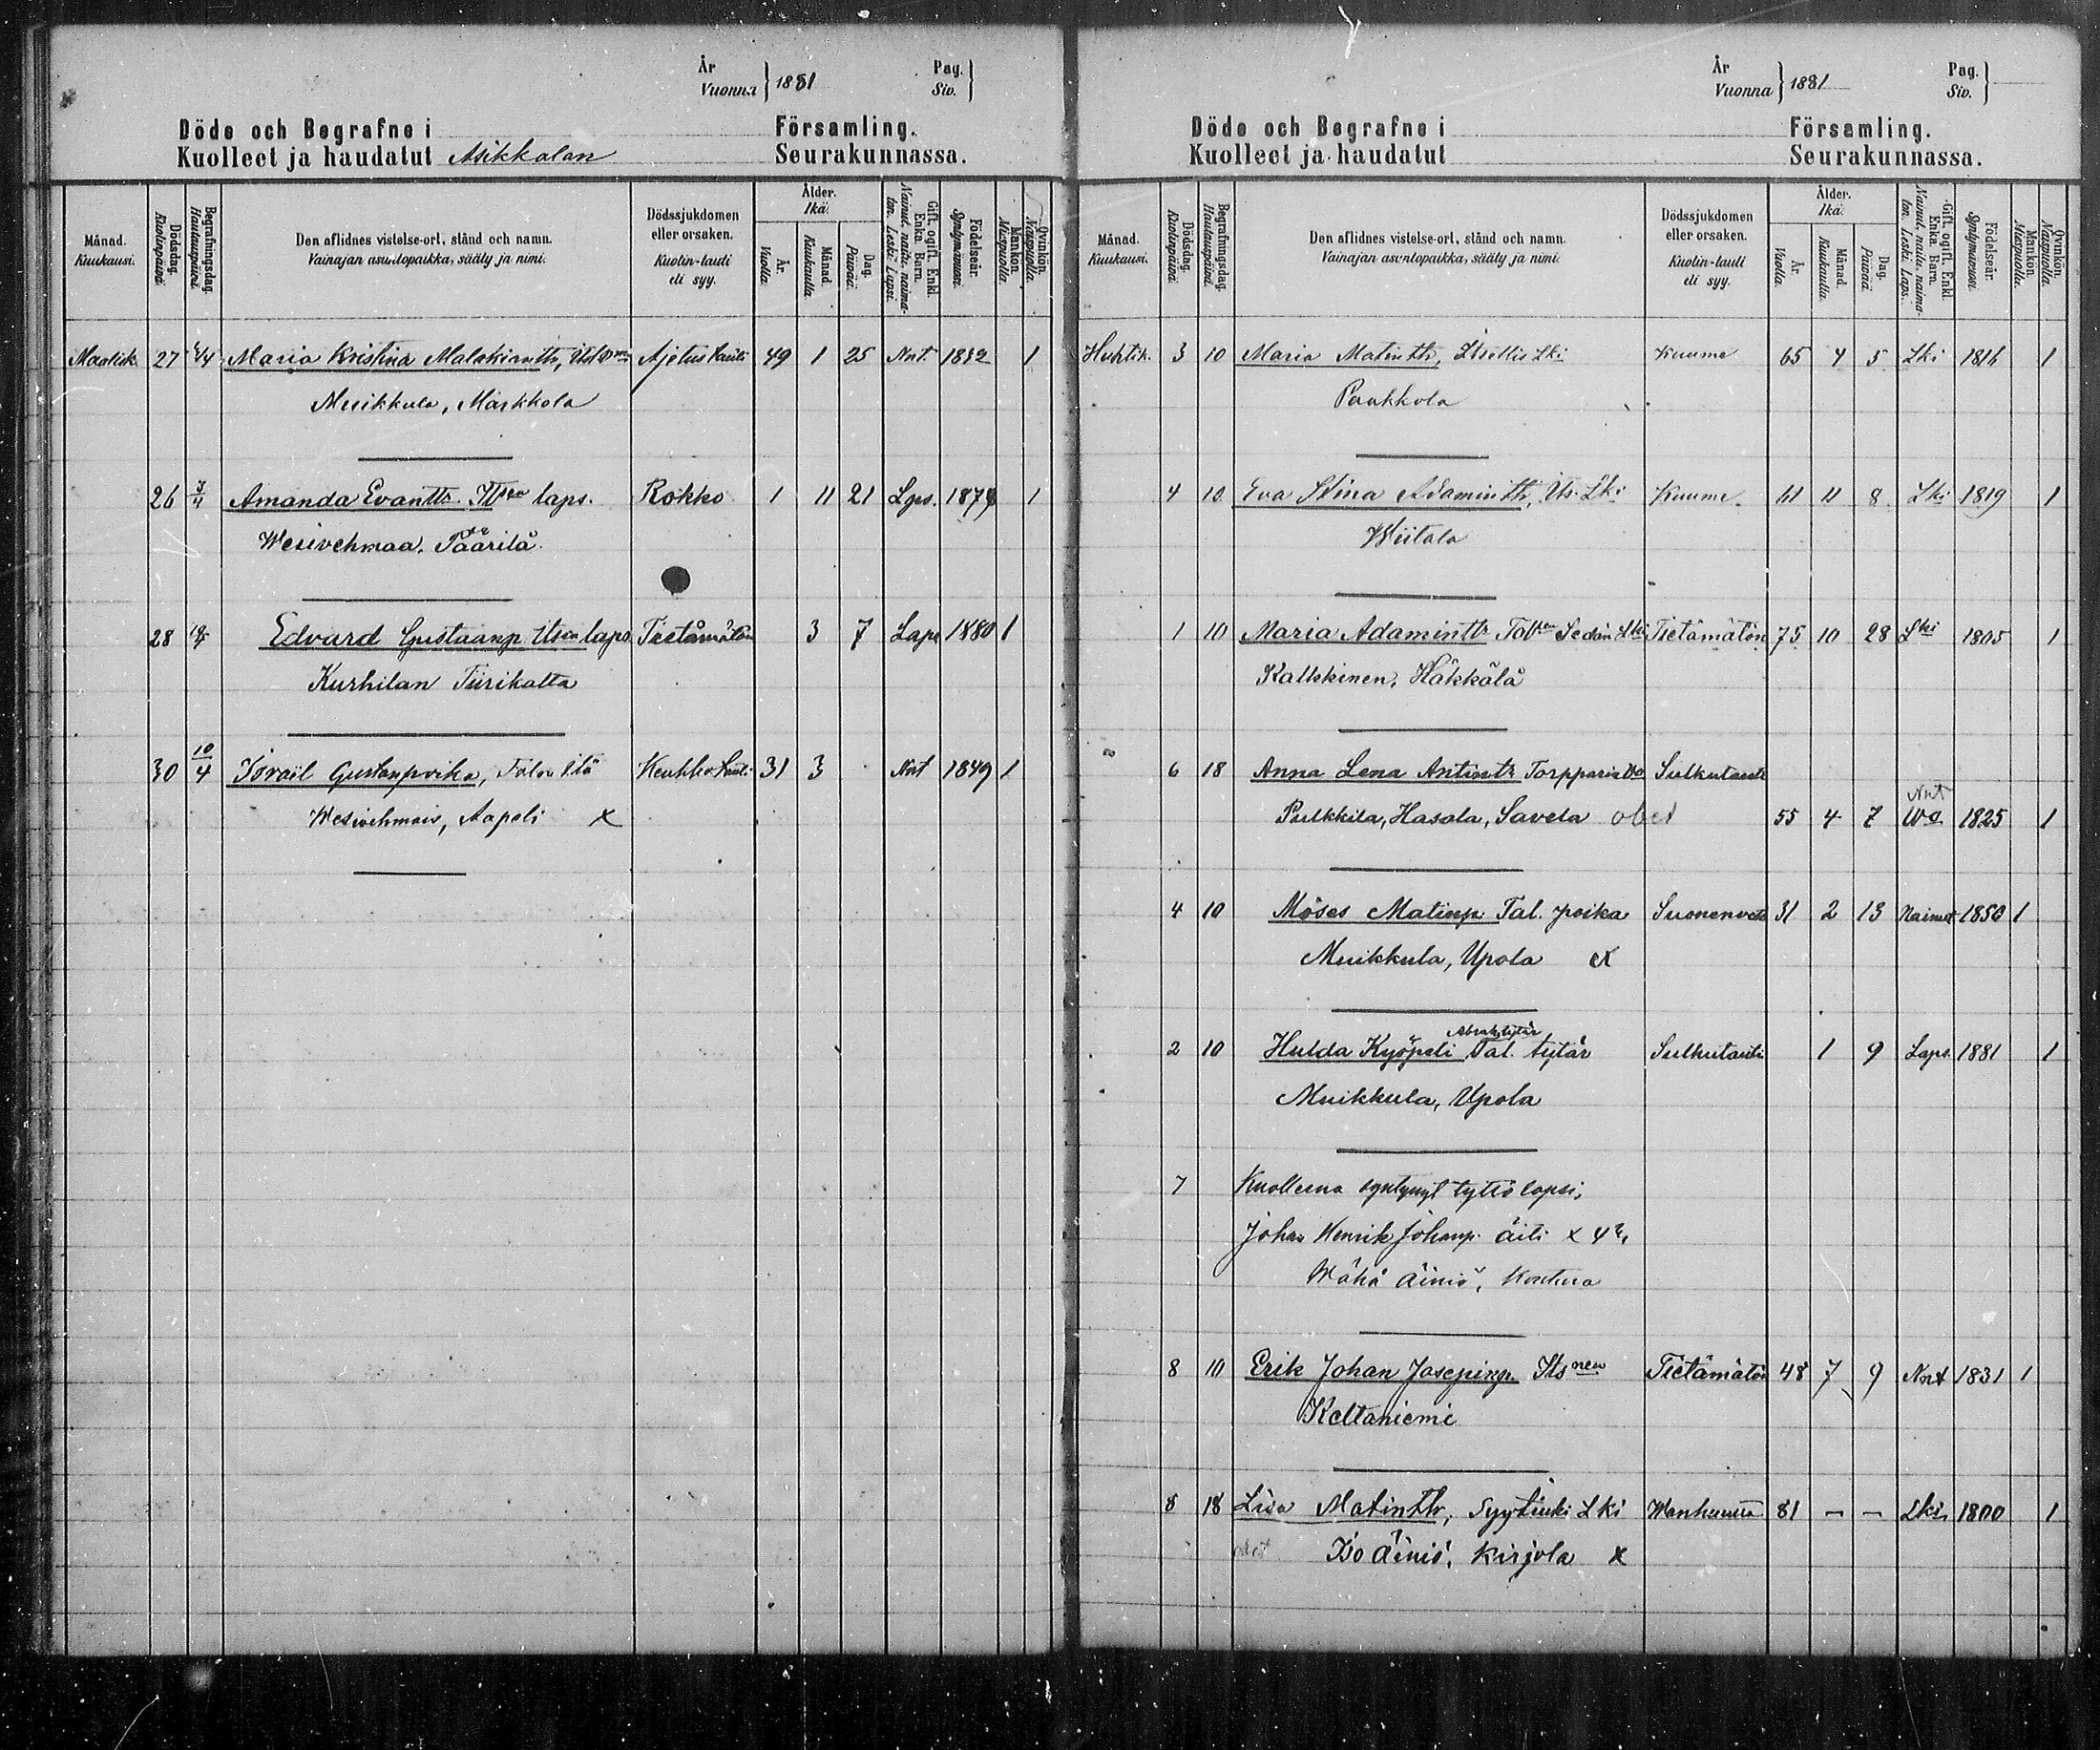 År
Vuonna } 1881
Pag.
Siv. }
Döde och Begrafne i Församling.
Kuolleet ja haudatut Asikkalan Seurakunnassa.
Månad.
Kuukausi.
Dödsdag.
Kuolinpäivä.
Begrafningsdag.
Hautauspäivä.
Den aflidnes vistelse-ort, stånd och namn.
Vainajan asuntopaikka, sääty ja nimi.
Dödssjukdomen
eller orsaken.
Kuolin-tauti
eli syy.
Ålder.
Ikä.
År.
Vuotta.
Månad.
Kuukautta.
Dag.
Päivää.
Gift, ogift, Enkl.
Enka. Barn.
Nainut, naitu, naima-
ton. Leski. Lapsi.
Födelseår.
Syntymävuosi.
Mankön.
Miespuolia.
Qvinkön.
Naispuolia.
Maalisk. 27 4/4 Maria Kristina Malakiantr, Ajetustauti 49 1 25 Nnt. 1832 1
Muikkula, Markkola
26 3/4 Amanda Evanttr. laps. Rokko 1 11 21 Lps. 1879 1
Wesivehmaa, Päärilä
28 Edvard Gustaanp Itsen laps Tietämätön 3 7 Laps 1880 1
Kurhilan Tiirikatta
30 10/4 Israil Gustanpoika, Keuhko tauti 31 3 Nnt 1849 1
Wesivehmais, Aapeli x
År
Vuonna } 1881
Pag.
Siv. }
Döde och Begrafne i Församling.
Kuolleet ja haudatut Seurakunnassa.
Månad.
Kuukausi.
Dödsdag.
Kuolinpäivä.
Begrafningsdag.
Hautauspäivä.
Den aflidnes vistelse-ort, stånd och namn.
Vainajan asuntopaikka, sääty ja nimi.
Dödssjukdomen
eller orsaken.
Kuolin-tauti
eli syy.
Ålder.
Ikä.
År.
Vuotta.
Månad.
Kuukautta.
Dag.
Päivää.
Gift, ogift, Enkl.
Enka. Barn.
Nainut, naitu, naima-
ton. Leski. Laps.
Födelseår.
Syntymävuosi.
Mankön.
Miespuolia.
Qvinkön.
Naispuolia.
Huhtik. 3 10 Maria Matintr, Itsellis Lki Kuume 65 4 5 Lki 1816 1
Paakkola
4 10 Eva Stina Adamintr, Its. Lki Kuume 61 11 8 Lki 1819 1
Wiitala
1 10 Maria Adamintr Sedän Lki Tietämätön 75 10 28 Lki 1805 1
Kalkkinen, Häkkälä
6 18 Anna Lena Antintr Torpparin Wo Sulkutauti
Pulkkila, Hasala, Savela obet 55 4 7 Nnt Wo 1825 1
4 10 Moses Matinp Tal. poika Suonenveto 31 2 13 Nainut 1850 1
Muikkula, Upola x
Abrah.tytär
2 10 Hulda Kyöpeli Tal. tytär Sulkutauti 1 9 Laps. 1881 1
Muikkula, Upola
7 Kuolleena syntynyt tyttö lapsi,
Johan Henrik Johanp. äiti x
Wähä äiniö, Konttura
8 10 Erik Johan Josepinp. Itsnen Tietämätön 48 7 9 Nnt 1831 1
Keltaniemi
8 18 Lisa Matinttr, Syytinki Lki Wanhuus 81 — — Lki 1800 1
obet Iso äiniö, Kirjola x